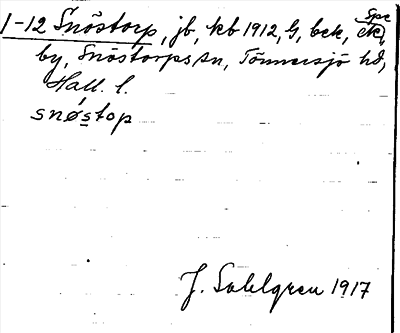 1-12 Snöstorp, jb, kb 1912, G, bek, Spe ek,
by, Snöstorps sn, Tönnersjö hd,
Hall. l.
snøstop
J. Sahlgren 1917